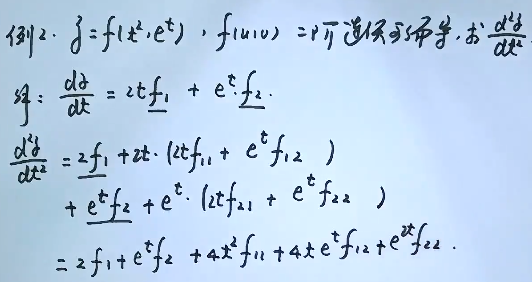 例2. z = f(t², eᵗ), f(u,v) 二阶可连续偏导, 求 d²z/dt²
解: dz/dt = 2tf₁ + eᵗ·f₂.
d²z/dt² = 2f₁ + 2t·(2tf₁₁ + eᵗf₁₂ )
+ eᵗf₂ + eᵗ·(2tf₂₁ + eᵗf₂₂ )
= 2f₁ + eᵗf₂ + 4t²f₁₁ + 4teᵗf₁₂ + e²ᵗf₂₂.